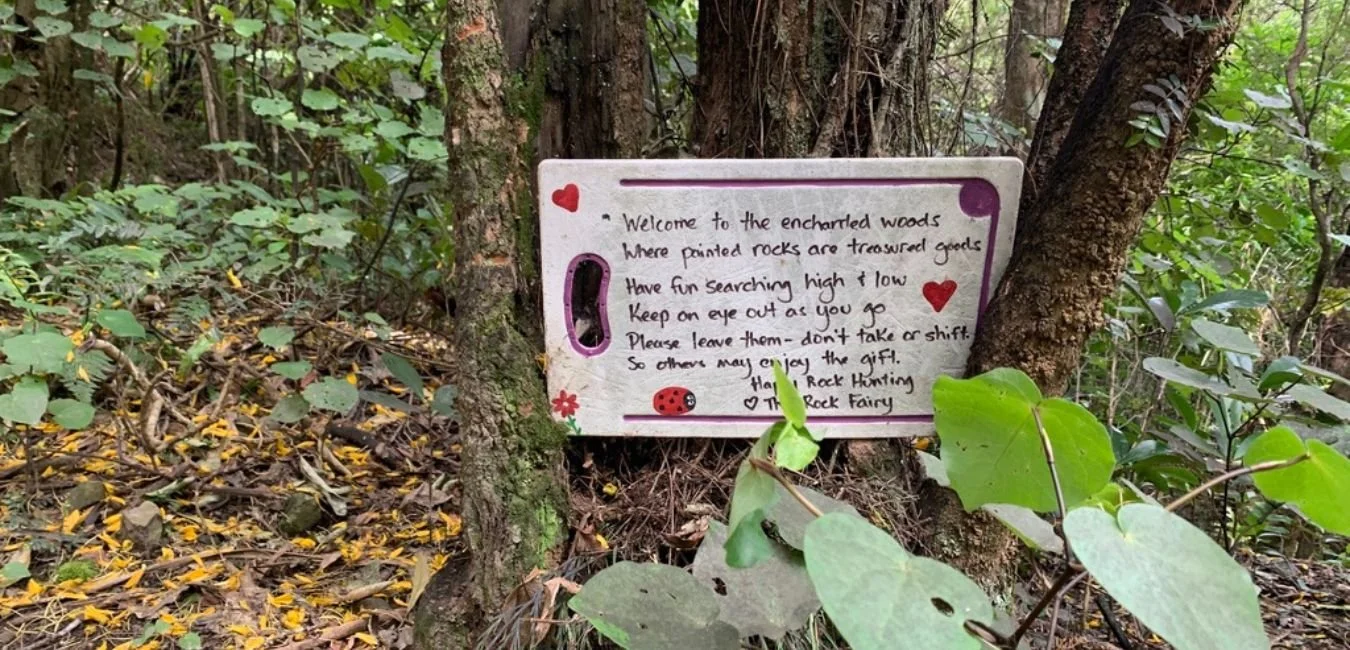 " Welcome to the enchanted woods
Where painted rocks are treasured goods
Have fun searching high & low
Keep an eye out as you go
Please leave them - don't take or shift.
So others may enjoy the gift.
Happy Rock Hunting
♡ The Rock Fairy